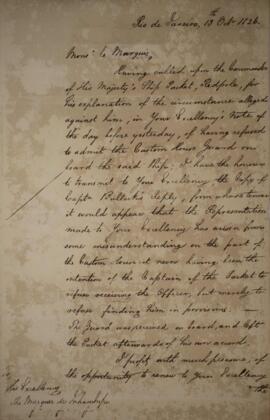 Rio de Janeiro, 13th Octr 1826.
Monsr le Marquis,
Having called upon the Commander
of His Majesty's Ship Packet, Redpole, for
his explanation of the circumstance alleged
against him, in Your Excellency's Note of
the day before yesterday, of having refused
to admit the Custom House Guard on
board the said Ship: I have the honour
to transmit to Your Excellency the Copy of
Captn Bullock's reply, from whose tenour
it would appear, that the Representation
made to Your Excellency has arisen from
some misunderstanding on the part of
the Custom house it never having been the
intention of the Captain of the Packet to
refuse receiving the Officer, but merely to
refuse finding him in provisions. —
The Guard was received on board, and left
the Packet afterwards of his own accord.
I profit with much pleasure, of
the opportunity to renew to Your Excellency
the
His Excellency
The Marquis de Inhambupe